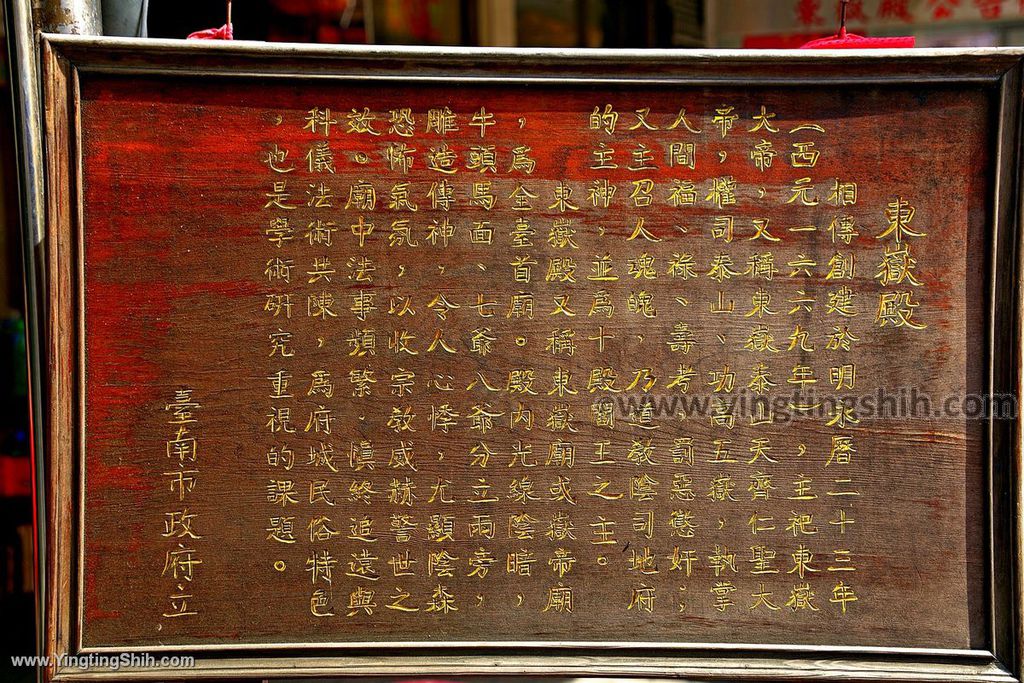 東嶽殿
相傳創建於明永曆二十三年
（西元一六六九年），主祀東嶽
大帝，又稱東嶽泰山天齊仁聖大
帝，權司泰山、功高五嶽，執掌
人間福、祿、壽考，罰惡懲奸；
又主召人魂魄，乃道教陰司地府
的主神，並為十殿閻王之主。
東嶽殿又稱東嶽廟或嶽帝廟
，為全臺首廟。殿內光線陰暗，
牛頭馬面、七爺八爺分立兩旁，
雕造傳神，令人心悸，尤顯陰森
恐怖氣氛，以收宗教威赫警世之
效。廟中法事頻繁，慎終追遠與
科儀法術共陳，為府城民俗特色
，也是學術研究重視的課題。
臺南市政府立
©www.yingtingshih.com
www.YingtingShih.com